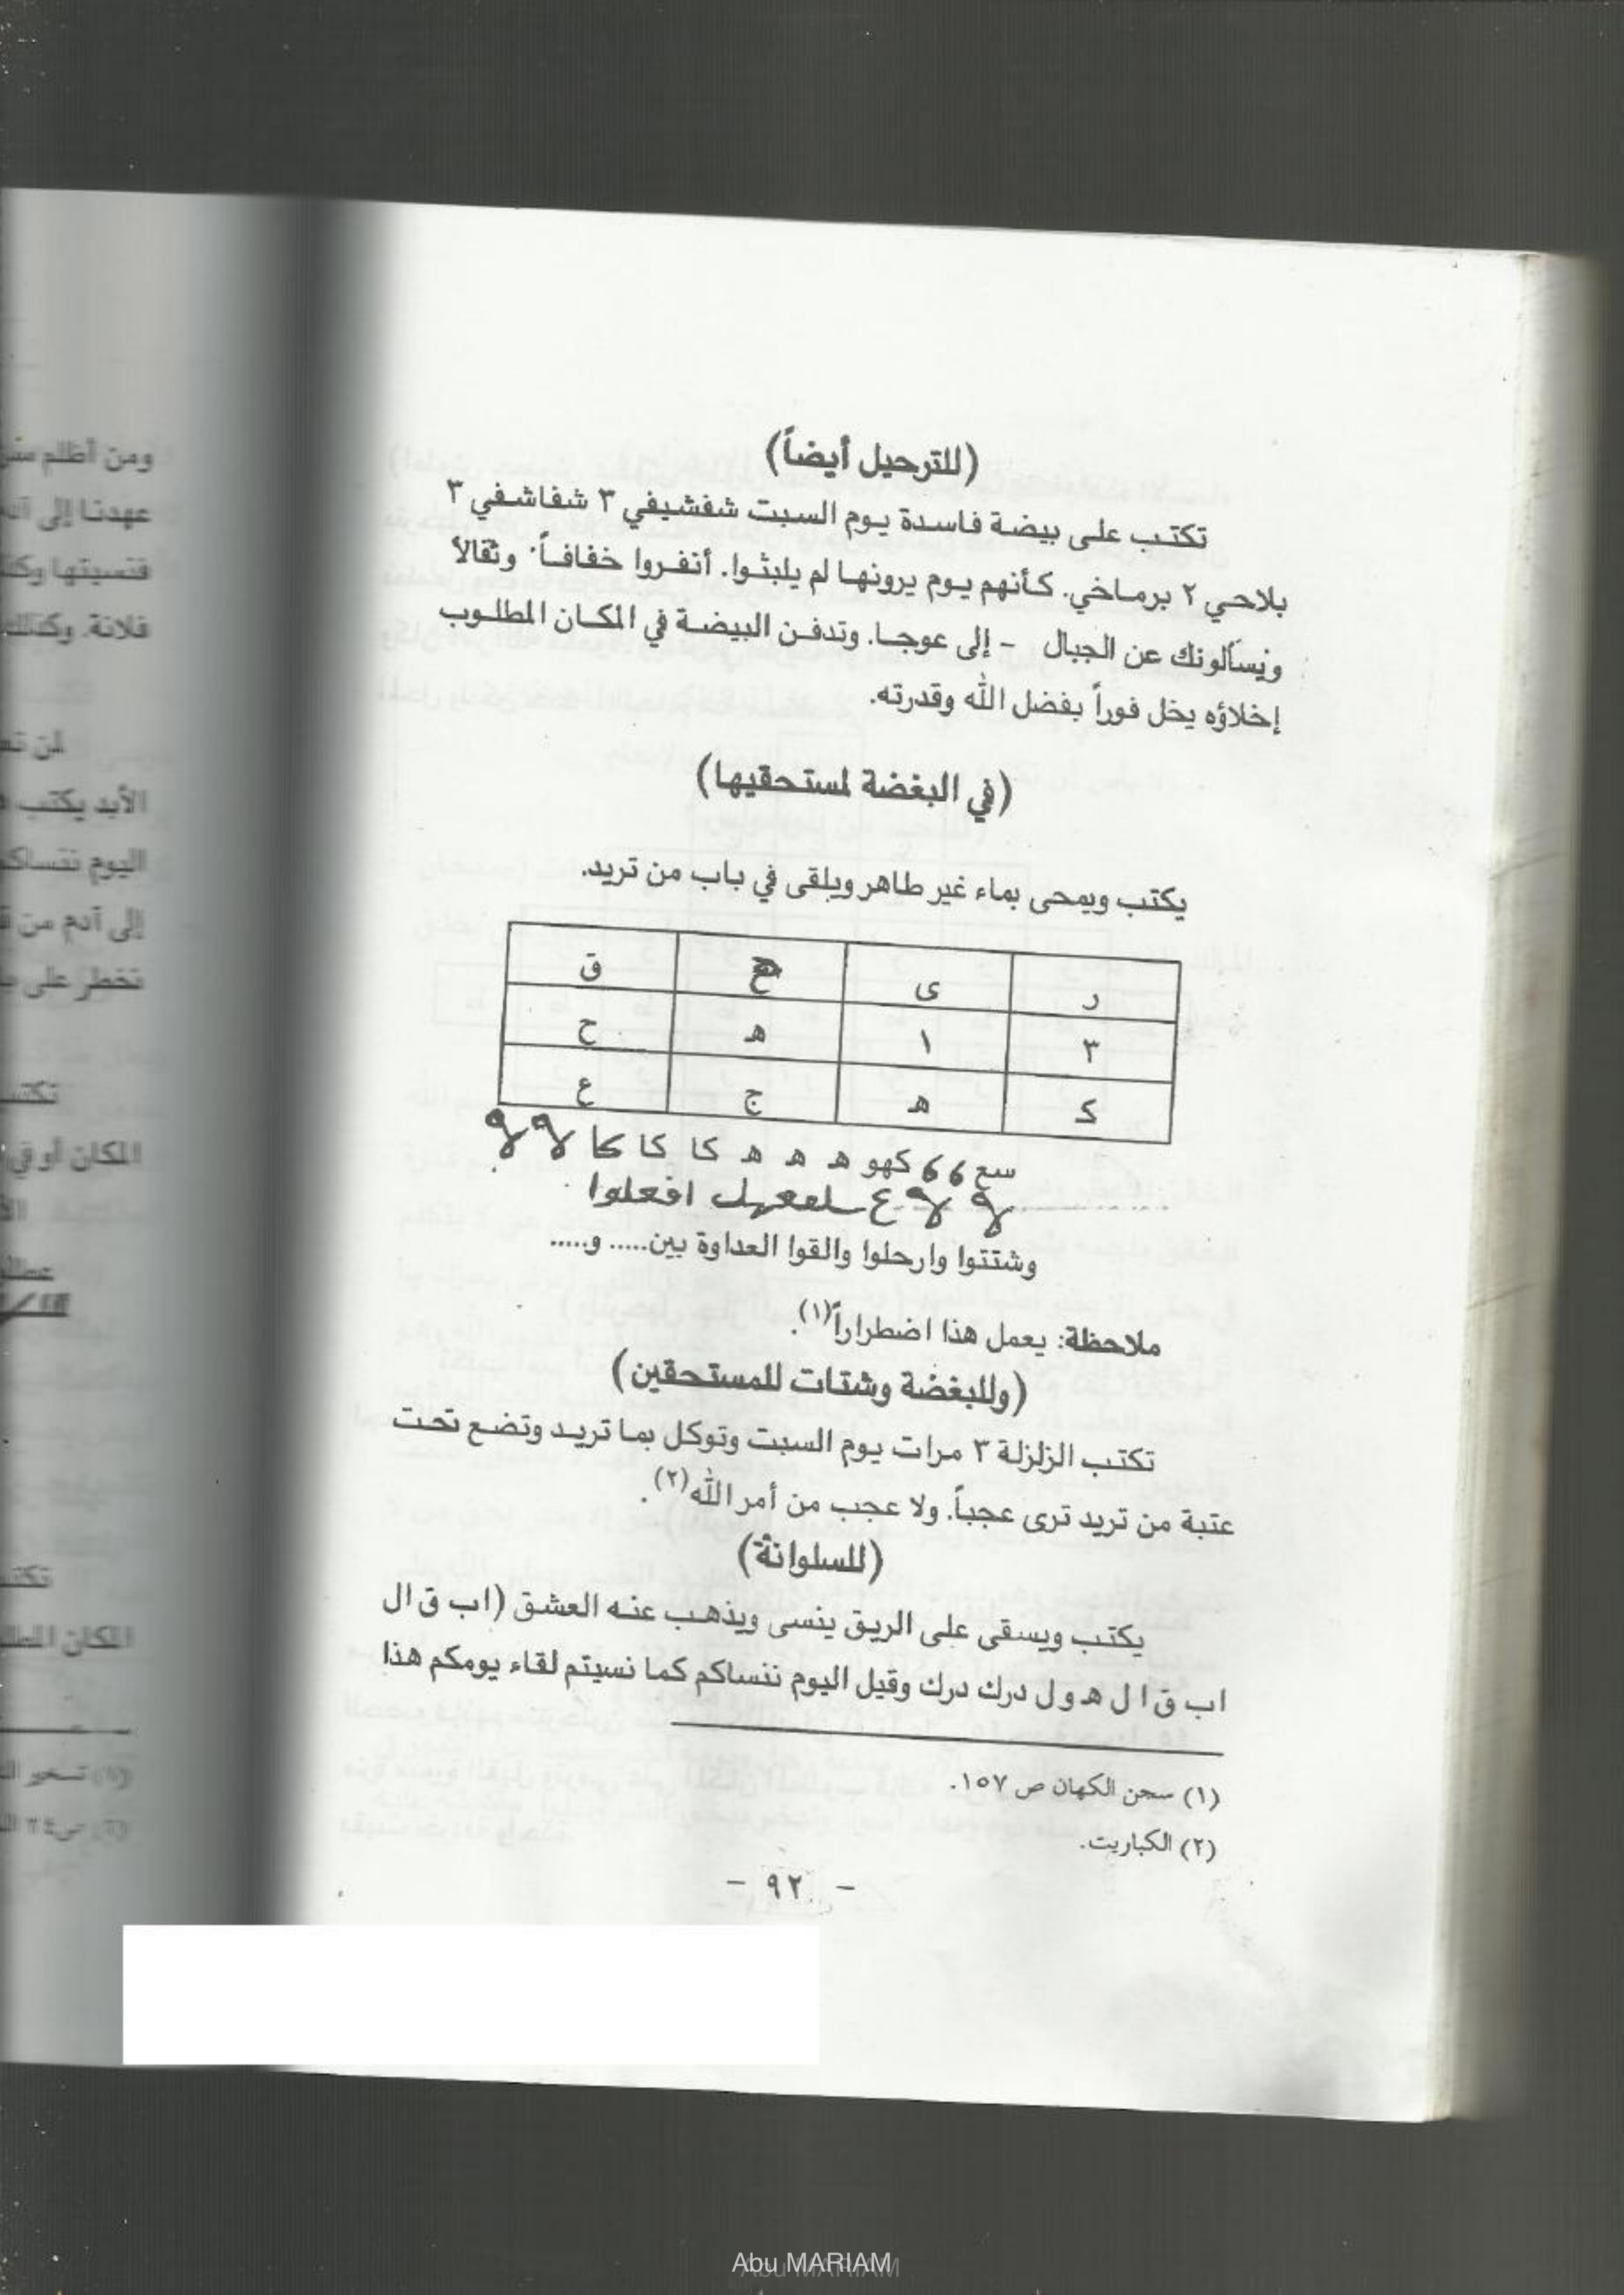 (للترحيل أيضاً)
تكتب على بيضة فاسدة يوم السبت شفشيفي ٣ شفاشفي ٣
بلاحي ٢ برماخي. كأنهم يوم يرونها لم يلبثوا. أنفروا خفافاً وثقالاً
ويسألونك عن الجبال - إلى عوجا. وتدفن البيضة في المكان المطلوب
إخلاؤه يخل فوراً بفضل الله وقدرته.
(في البغضة لمستحقيها)
يكتب ويمحى بماء غير طاهر ويلقى في باب من تريد.
ر ى ق
٣ ١ ه ح
ك ه ج ع
سع 6 6 كهو ه ه ه كا كا كا
افعلوا
وشتتوا وارحلوا والقوا العداوة بين..... و.....
ملاحظة: يعمل هذا اضطراراً(١).
(وللبغضة وشتات للمستحقين)
تكتب الزلزلة ٣ مرات يوم السبت وتوكل بما تريد وتضع تحت
عتبة من تريد ترى عجباً. ولا عجب من أمر الله(٢).
(للسلوانة)
يكتب ويسقى على الريق ينسى ويذهب عنه العشق (ا ب ق ا ل
ا ب ق ا ل ه و ل درك درك وقيل اليوم ننساكم كما نسيتم لقاء يومكم هذا
(١) سحن الكهان ص ١٥٧.
(٢) الكباريت.
- ٩٢ -
ومن أظلم
عهدنا إلى
فنسيتها
فلانة. وكذلك
الأبد يكتب
اليوم ننساكم
إلى آدم من
تخطر على
المكان أو في
المكان
Abu MARIAM